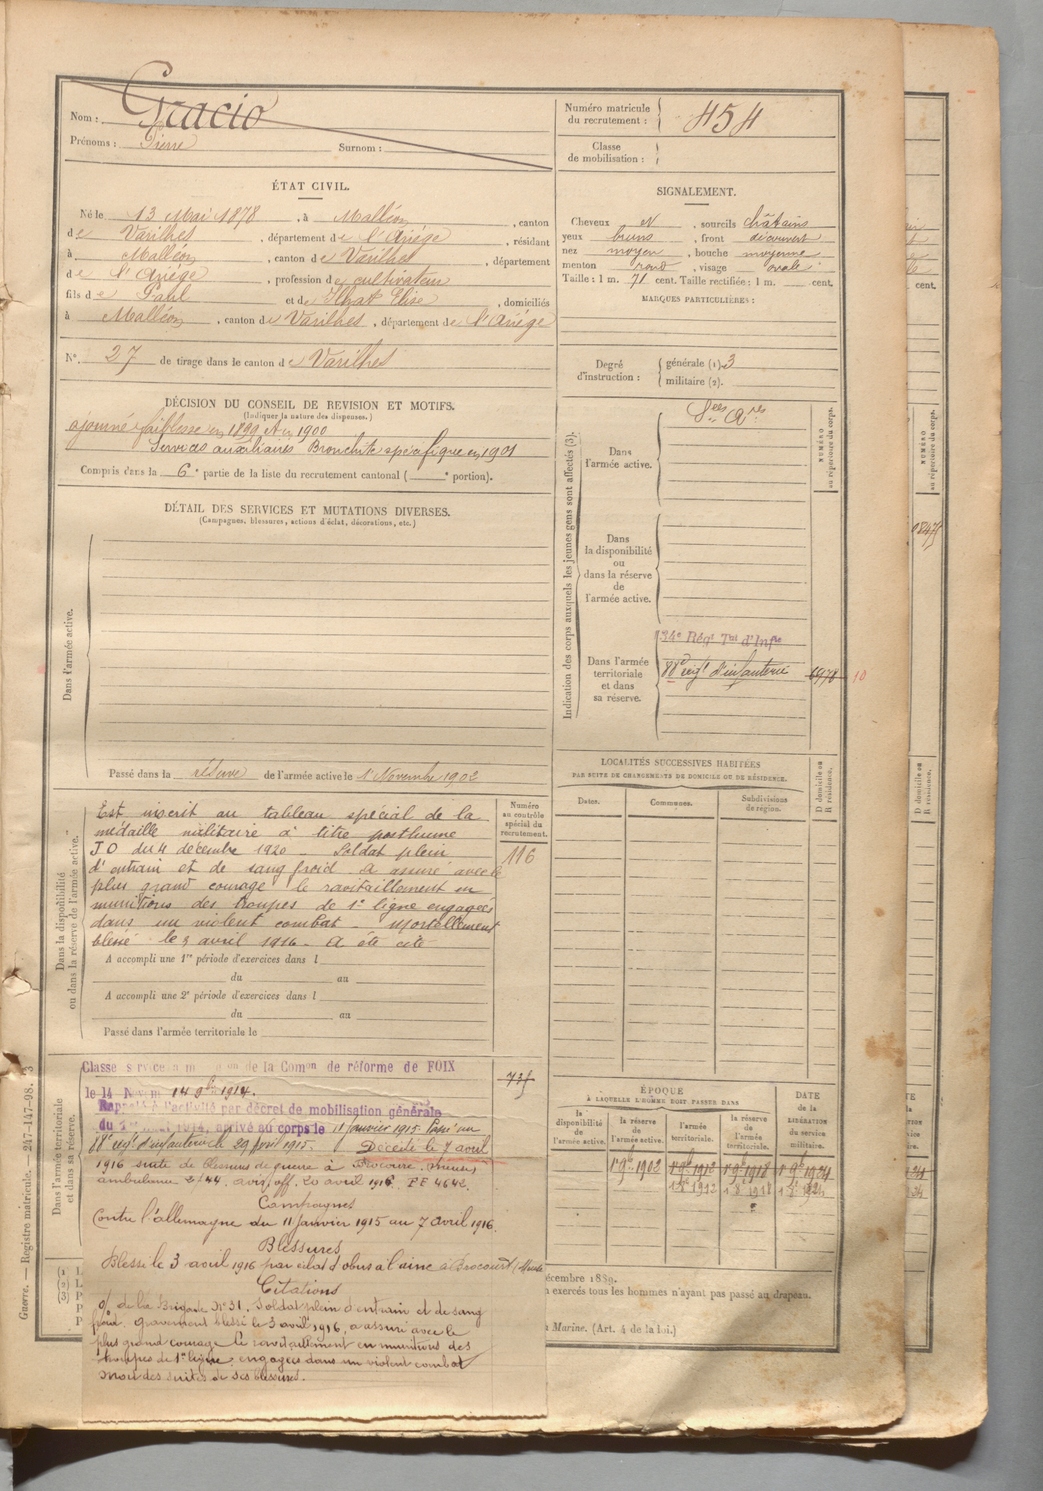 Nom : Gracio
Prénoms : Pierre Surnom :
Numéro matricule du recrutement : 454
Classe de mobilisation :
ÉTAT CIVIL.
Né le 13 Mai 1878, à Malléon, canton
de Varilhes, département de l'Ariége, résidant
à Malléon, canton de Varilhes, département
de l'Ariége, profession de cultivateur
fils de Paul et de Élise, domiciliés
à Malléon, canton de Varilhes, département de l'Ariége
N° 27 de tirage dans le canton de Varilhes
SIGNALEMENT.
Cheveux N, sourcils châtains
yeux bruns, front découvert
nez moyen, bouche moyenne
menton rond, visage ovale
Taille : 1 m. 71 cent. Taille rectifiée : 1 m. cent.
MARQUES PARTICULIÈRES :
Degré d'instruction :
générale (1) 3
militaire (2).
DÉCISION DU CONSEIL DE REVISION ET MOTIFS.
(Indiquer la nature des dispenses.)
ajourné faiblesse en 1899 et en 1900
Services auxiliaires Bronchite spécifique en 1901
Compris dans la 6e partie de la liste du recrutement cantonal ( e portion).
DÉTAIL DES SERVICES ET MUTATIONS DIVERSES.
(Campagnes, blessures, actions d'éclat, décorations, etc.)
Dans l'armée active.
Passé dans la réserve de l'armée active le 1 Novembre 1902
Indication des corps auxquels les jeunes gens sont affectés (3).
NUMÉRO au répertoire du corps.
Dans l'armée active.
Sces Ares
Dans la disponibilité ou dans la réserve de l'armée active.
Dans l'armée territoriale et dans sa réserve.
Régt Tal d'Infie
88e régt d'infanterie
10
LOCALITÉS SUCCESSIVES HABITÉES
PAR SUITE DE CHANGEMENTS DE DOMICILE OU DE RÉSIDENCE.
Dates. Communes. Subdivisions de région. D domicile ou R résidence.
Dans la disponibilité ou dans la réserve de l'armée active.
Numéro au contrôle spécial du recrutement.
116
Est inscrit au tableau spécial de la
médaille militaire à titre posthume
JO du 4 décembre 1920 - Soldat plein
d'entrain et de sang froid. a assuré avec le
plus grand courage le ravitaillement en
munitions des troupes de 1e ligne engagées
dans un violent combat - Mortellement
blessé le 3 avril 1916 - A été cité
A accompli une 1re période d'exercices dans l
du au
A accompli une 2e période d'exercices dans l
du au
Passé dans l'armée territoriale le
Dans l'armée territoriale et dans sa réserve.
Classe service de la Comon de réforme de FOIX
le 14 1914.
Rappelé à l'activité par décret de mobilisation générale
du 1914, arrivé au corps le 11 janvier 1915 Passé au
88e régt d'infanterie le 29 avril 1915. Décédé le 7 avril
1916 suite de blessures de guerre à Brocourt, Meuse,
ambulance 2/44. avis off. 20 avril 1916. PE 4642.
Campagnes
Contre l'allemagne du 11 Janvier 1915 au 7 avril 1916.
Blessures
Blessé le 3 avril 1916 par éclat d'obus à l'aine à Brocourt (Meuse
Citations
o/ de la Brigade N° 31. Soldat plein d'entrain et de sang
froid. Gravement blessé le 3 avril 1916, a assuré avec le
plus grand courage le ravitaillement en munitions des
troupes de 1e ligne, engagées dans un violent combat
Mort des suites de ses blessures.
735
ÉPOQUE
À LAQUELLE L'HOMME DOIT PASSER DANS
la disponibilité de l'armée active.
la réserve de l'armée active.
l'armée territoriale.
la réserve de l'armée territoriale.
DATE de la LIBÉRATION du service militaire.
1r 9b 1902 1r 9b 1912 1r 9b 1918 1r 9b 1924
1r 8b 1912 1r 8b 1918
écembre 1889.
exercés tous les hommes n'ayant pas passé au drapeau.
Marine. (Art. 4 de la loi.)
Guerre. — Registre matricule. 247-147-98.